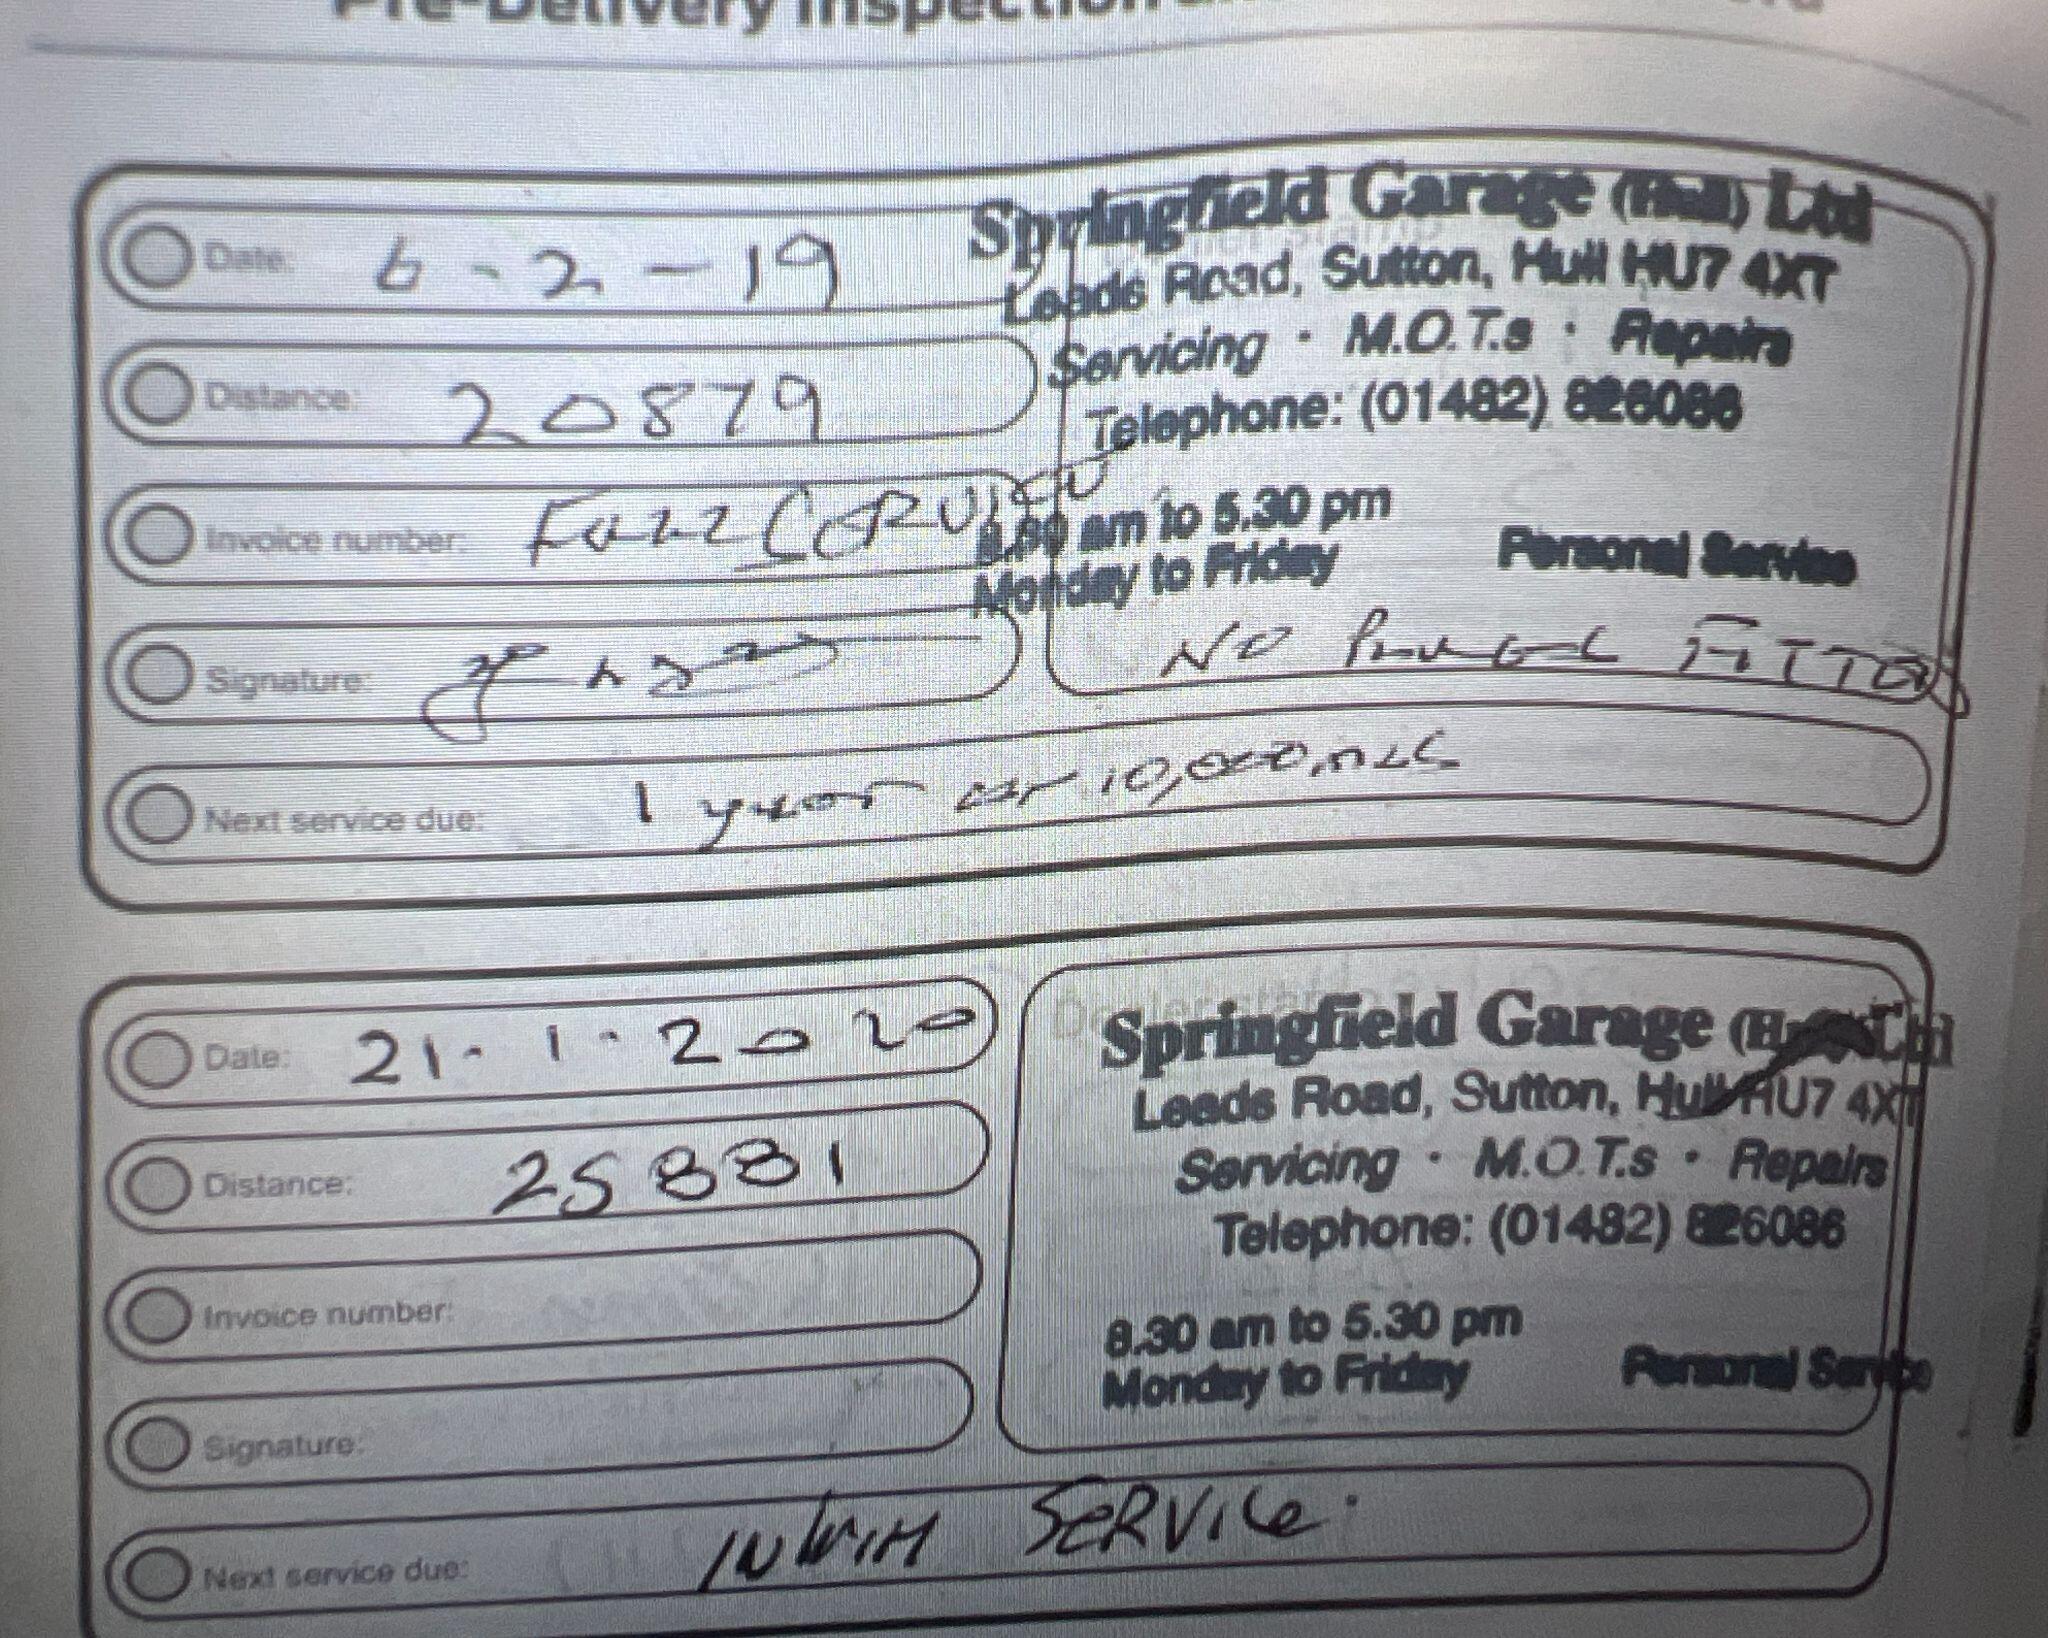 Pre-Delivery Inspection
Date: 6-2-19
Distance: 20879
Invoice number: Full Service
Signature:
Springfield Garage (Hull) Ltd
Leads Road, Sutton, Hull HU7 4XT
Servicing · M.O.T.s · Repairs
Telephone: (01482) 826086
8.30 am to 5.30 pm
Monday to Friday
Personal Service
No
Next service due: 1 year or 10,000
Date: 21.1.2020
Distance: 25881
Invoice number:
Signature:
Springfield Garage (Hull) Ltd
Leads Road, Sutton, Hull HU7 4XT
Servicing · M.O.T.s · Repairs
Telephone: (01482) 826086
8.30 am to 5.30 pm
Monday to Friday
Personal Service
Next service due: SERVICE.